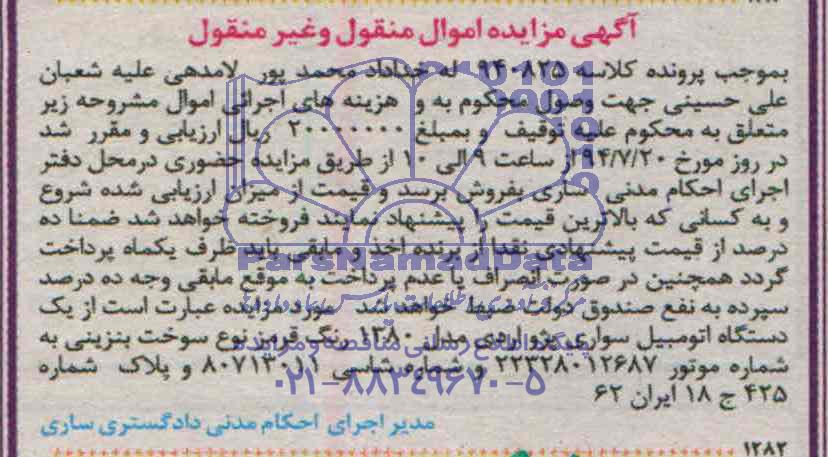 آگهی مزایده اموال منقول وغیر منقول
بموجب پرونده کلاسه ۹۴۰۸۲۵ له خداداد محمد پور لامدهی علیه شعبان
علی حسینی جهت وصول محکوم به و هزینه های اجرائی اموال مشروحه زیر
متعلق به محکوم علیه توقیف و بمبلغ ۲۰۰۰۰۰۰۰ ریال ارزیابی و مقرر شد
در روز مورخ ۹۴/۷/۲۰ از ساعت ۹ الی ۱۰ از طریق مزایده حضوری درمحل دفتر
اجرای احکام مدنی ساری بفروش برسد و قیمت از میزان ارزیابی شده شروع
و به کسانی که بالاترین قیمت را پیشنهاد نمایند فروخته خواهد شد ضمنا ده
درصد از قیمت پیشنهادی نقدا از برنده اخذ و مابقی باید ظرف یکماه پرداخت
گردد همچنین در صورت انصراف یا عدم پرداخت به موقع مابقی وجه ده درصد
سپرده به نفع صندوق دولت ضبط خواهد شد مورد مزایده عبارت است از یک
دستگاه اتومبیل سواری پژو اردی مدل ۱۳۸۰ رنگ قرمز نوع سوخت بنزینی به
شماره موتور ۲۲۳۲۸۰۱۲۶۸۷ و شماره شاسی ۸۰۷۱۳۰۱۱ و پلاک شماره
۴۲۵ ج ۱۸ ایران ۶۲
مدیر اجرای احکام مدنی دادگستری ساری
۱۲۸۲
ParsNamadData
پایگاه اطلاع رسانی مناقصه و مزایده
۰۲۱-۸۸۳۴۹۶۷۰-۵